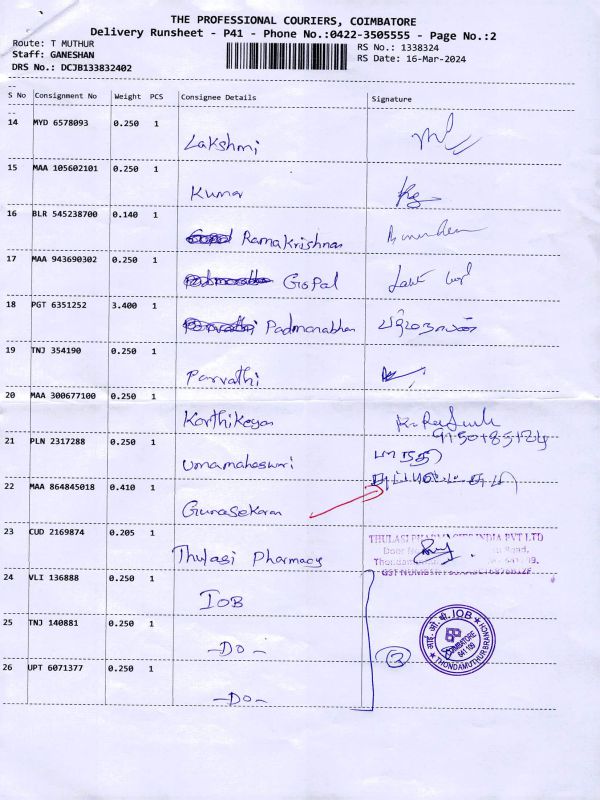 THE PROFESSIONAL COURIERS, COIMBATORE
Delivery Runsheet - P41 - Phone No.:0422-3505555 - Page No.:2
Route: T MUTHUR RS No.: 1338324
Staff: GANESHAN RS Date: 16-Mar-2024
DRS No.: DCJB133832402
S No Consignment No Weight PCS Consignee Details Signature
14 MYD 6578093 0.250 1
Lakshmi
15 MAA 105602101 0.250 1
Kumar
16 BLR 545238700 0.140 1
Ramakrishnan
17 MAA 943690302 0.250 1
Gopal
18 PGT 6351252 3.400 1
Padmanabhan
19 TNJ 354190 0.250 1
Parvathi
20 MAA 300677100 0.250 1
Karthikeyan
21 PLN 2317288 0.250 1
Umamaheswari
22 MAA 864845018 0.410 1
Gunasekaran
23 CUD 2169874 0.205 1
Thulasi Pharmacy
THULASI PHARMACIES INDIA PVT LTD
24 VLI 136888 0.250 1
IOB
25 TNJ 140881 0.250 1
-Do-
26 UPT 6071377 0.250 1
-Do-
3
आई.ओ.बी. IOB
COIMBATORE
641 109
THONDAMUTHUR BRANCH